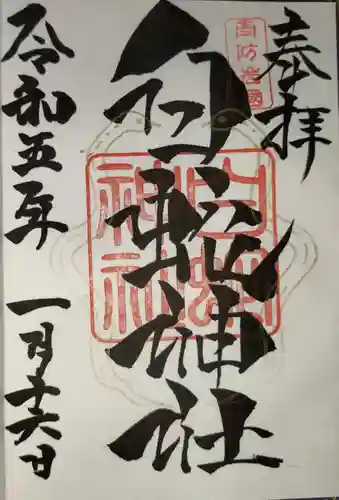 奉拝
周防岩國
白蛇神社
白蛇神社
令和五年 一月十六日